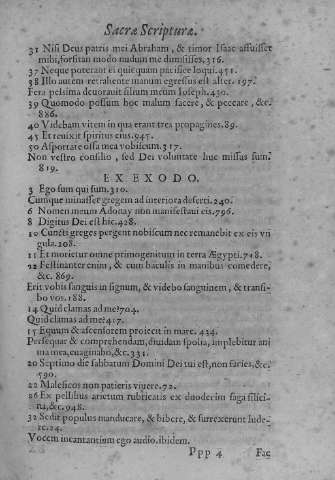 Sacræ Scripturæ.
31 Nisi Deus patris mei Abraham, & timor Isaac affuisset
mihi, forsitan modo nudum me dimisisses. 316.
37 Neque poterant ei quicquam pacifice loqui. 451.
38 Illo autem retrahente manum egressus est alter. 197.
Fera pessima devoravit filium meum Ioseph. 430.
39 Quomodo possum hoc malum facere, & peccare, &c.
886.
40 Videbam vitem in qua erant tres propagines. 89.
45 Et revixit spiritus eius. 947.
50 Asportate ossa mea vobiscum. 317.
Non vestro consilio, sed Dei voluntate huc missus sum.
819.
EX EXODO.
3 Ego sum qui sum. 310.
Cumque minasset gregem ad interiora deserti. 240.
6 Nomen meum Adonay non manifestavi eis. 796.
8 Digitus Dei est hic. 428.
10 Cuncti greges pergent nobiscum nec remanebit ex eis vn
gula. 208.
11 Et morietur omne primogenitum in terra Ægypti. 748.
12 Festinanter enim, & cum baculis in manibus comedere,
&c. 869.
Erit vobis sanguis in signum, & videbo sanguinem, & transi-
bo vos. 188.
14 Quid clamas ad me? 704.
Quid clamas ad me? 417.
15 Equum & ascensorem proiecit in mare. 434.
Persequar & comprehendam, dividam spolia, implebitur ani
ma mea, euaginabo, &c. 331.
20 Septimo die sabbatum Domini Dei tui est, non facies, &c.
590.
22 Maleficos non patieris viuere. 72.
26 Ex pellibus arietum rubricatis ex duodecim saga cilici-
na, &c. 948.
32 Sedit populus manducare, & bibere, & surrexerunt lude-
re. 24.
Vocem incantantium ego audio. ibidem.
Ppp 4 Fac